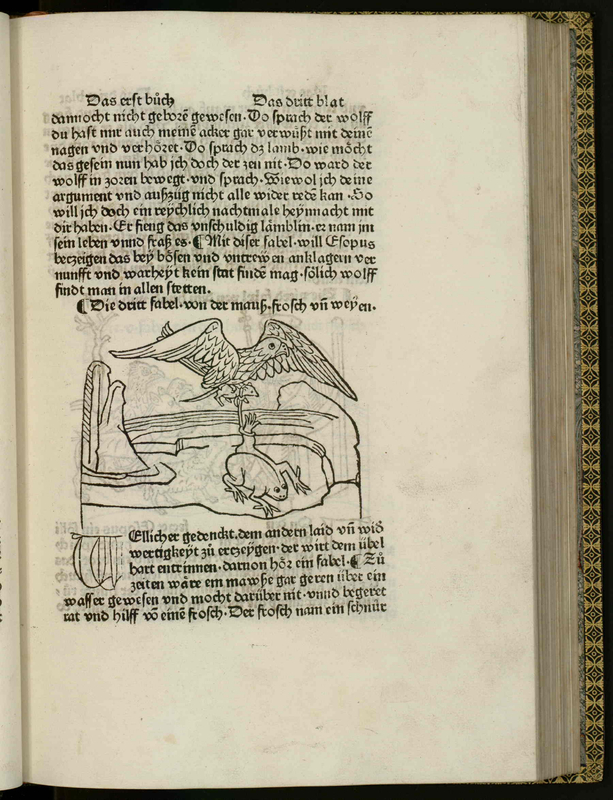 Das erst bůch Das dritt blat
dannocht nicht geborē gewesen. Do sprach der wolff
du hast mir auch meinē acker gar verwůst mit deinē
nagen vnd verhöret. Do sprach dz lamb. wie möcht
das gesein nun hab jch doch der zen nit. Do ward der
wolff in zoren bewegt. vnd sprach. Wiewol jch deine
argument vnd aufzüg nicht alle wider redē kan. So
will jch doch ein reychlich nachtmale heynnacht mit
dir haben. Er fieng das vnschuldig lämblin. er nam jm
sein leben vnnd fraß es. ¶ Mit diser fabel. will Esopus
bezeigen das bey bösen vnd vntrewen anklagern ver
nunfft vnd warheyt kein stat findē mag. sölich wolff
findt man in allen stetten.
¶ Die dritt fabel. von der mauß. frosch vn̄ weyen.
WEllicher gedenckt. dem andern laid vn̄ wid̄
wertigkeyt zů erzeygen. der wirt dem übel
hart entrinnen. daruon hör ein fabel. ¶ Zů
zeiten wäre ein mawße gar geren über ein
wasser gewesen vnd mocht darüber nit. vnnd begeret
rat vnd hilff vō einē frosch. Der frosch nam ein schnůr